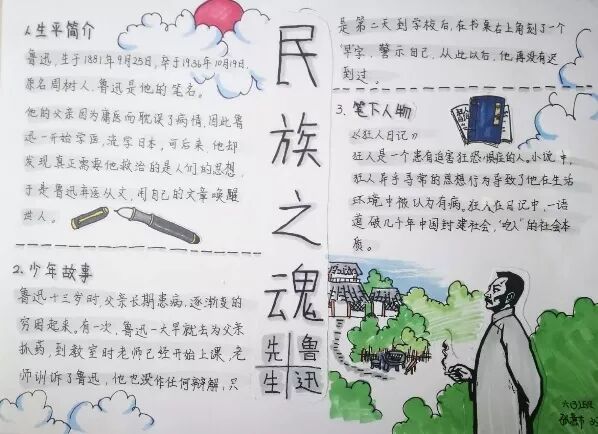 民族之魂
鲁迅
先生
1.生平简介
鲁迅,生于1881年9月25日,卒于1936年10月19日,
原名周树人,鲁迅是他的笔名。
他的父亲因为庸医而耽误了病情,因此鲁
迅一开始学医,流学日本,可后来,他却
发现真正需要他救治的是人们的思想,
于是鲁迅弃医从文,用自己的文章唤醒
世人。
2.少年故事
鲁迅十三岁时,父亲长期患病,逐渐变的
穷困起来。有一次,鲁迅一大早就去为父亲
抓药,到教室时老师已经开始上课,老
师训诉了鲁迅,他也没作任何辩解,只
是第二天到学校后,在书桌右上角刻了一个
早字,警示自己,从此以后,他再没有迟
到过。
3.笔下人物
《狂人日记》
狂人是一个患有迫害狂恐惧症的人。小说中,
狂人异乎寻常的思想行为导致了他在生活
环境中被认为有病。狂人在日记中,一语
道破几千年中国封建社会,"吃人"的社会本
质。